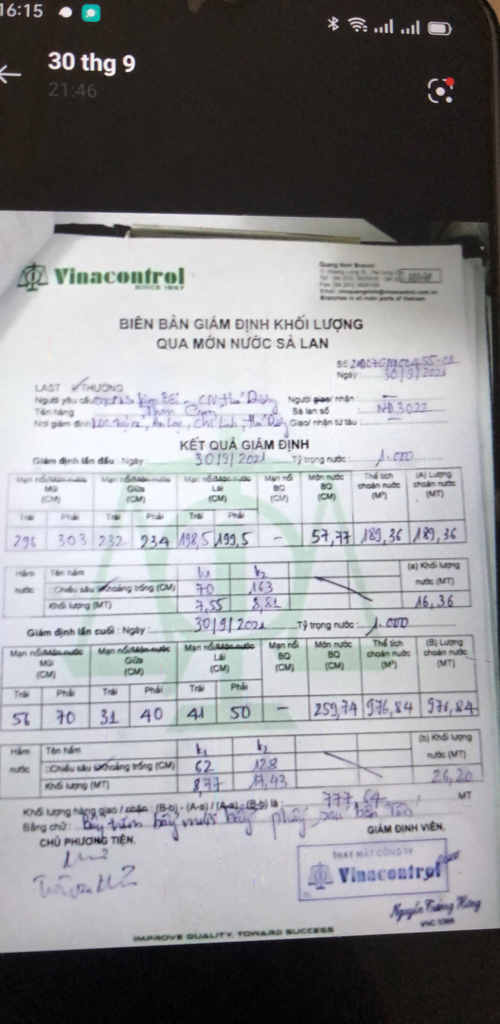 16:15
30 thg 9
21:46
Vinacontrol
SINCE 1957
Quang Ninh Branch
Branches in all main ports of Vietnam
BIÊN BẢN GIÁM ĐỊNH KHỐI LƯỢNG
QUA MỚN NƯỚC SÀ LAN
Số
Ngày 30/9/2021
LAST ✓ THƯỜNG
Người yêu cầu Kim Bôi - CN Hải Dương Người giao/ nhận –
Tên hàng Than Cám Sà lan số NĐ 3022
Nơi giám định An Lạc, Chí Linh, Hải Dương Giao/ nhận từ tàu –
KẾT QUẢ GIÁM ĐỊNH
Giám định lần đầu : Ngày : 30/9/2021 Tỷ trọng nước : 1.000
Mạn nổi/Mớn nước Mũi (CM) Mạn nổi/Mớn nước Giữa (CM) Mạn nổi/Mớn nước Lái (CM) Mạn nổi BQ (CM) Mớn nước BQ (CM) Thể tích choán nước (M³) (A) Lượng choán nước (MT)
Trái Phải Trái Phải Trái Phải
296 303 232 234 198,5 199,5 – 57,77 189,36 189,36
Hầm nước Tên hầm k1 k2 (a) Khối lượng nước (MT)
Chiều sâu khoảng trống (CM) 70 163
Khối lượng (MT) 7,55 8,81 16,36
Giám định lần cuối : Ngày : 30/9/2021 Tỷ trọng nước : 1.000
Mạn nổi/Mớn nước Mũi (CM) Mạn nổi/Mớn nước Giữa (CM) Mạn nổi/Mớn nước Lái (CM) Mạn nổi BQ (CM) Mớn nước BQ (CM) Thể tích choán nước (M³) (B) Lượng choán nước (MT)
Trái Phải Trái Phải Trái Phải
56 70 31 40 41 50 – 259,74 976,84 976,84
Hầm nước Tên hầm k1 k2 (b) Khối lượng nước (MT)
Chiều sâu khoảng trống (CM) 62 128
Khối lượng (MT) 8,77 17,43 26,20
Khối lượng hàng giao / nhận : (B-b) - (A-a) / (A-a) - (B-b) là : 777,64 MT
Bằng chữ : Bẩy trăm bẩy mươi bẩy phẩy sáu bốn Tấn
CHỦ PHƯƠNG TIỆN, GIÁM ĐỊNH VIÊN,
THAY MẶT CÔNG TY
Vinacontrol
Nguyễn Hùng
IMPROVE QUALITY, TOWARD SUCCESS